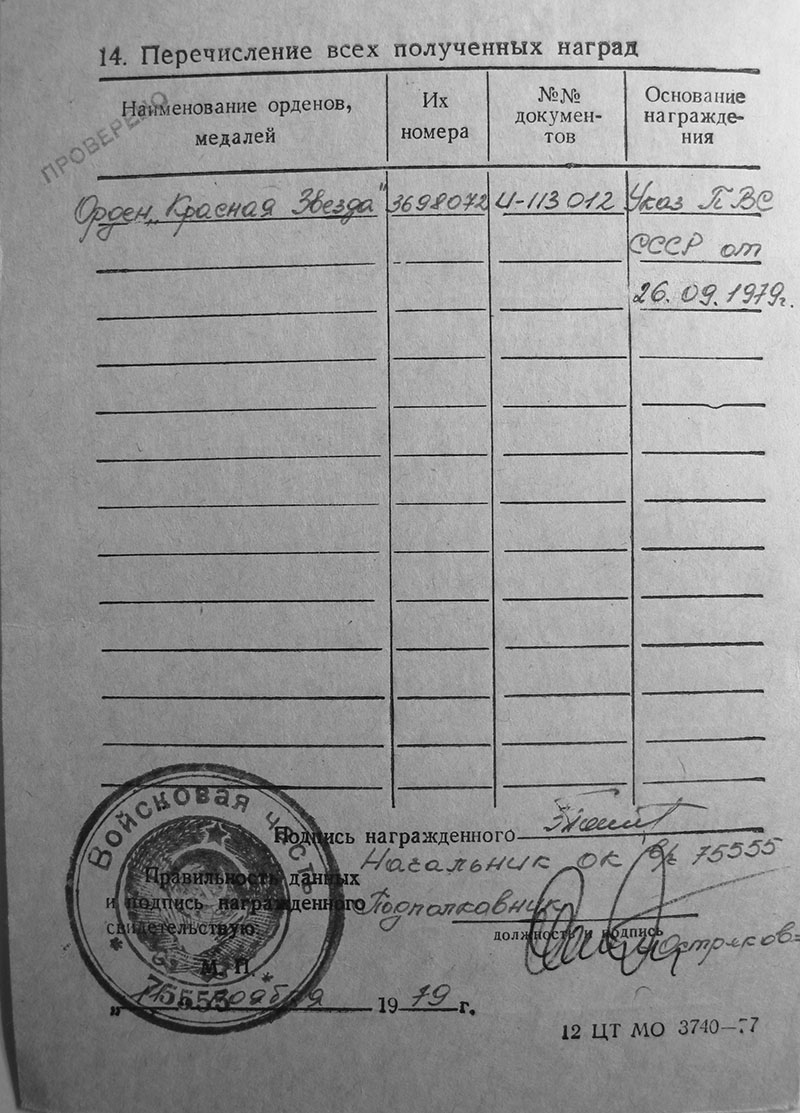 14. Перечисление всех полученных наград
ПРОВЕРЕНО
Наименование орденов,
медалей
Их
номера
№№
докумен-
тов
Основание
награжде-
ния
Орден „Красная Звезда" 3698072 И-113012 Указ ПВС
СССР от
26.09.1979г.
Войсковая часть
Подпись награжденного
Начальник ОК в/ч 75555
Правильность данных
и подпись награжденного Подполковник
свидетельствую:
должность и подпись
Остриков
М. П.
75555
„ ноября 1979 г.
12 ЦТ МО 3740—77